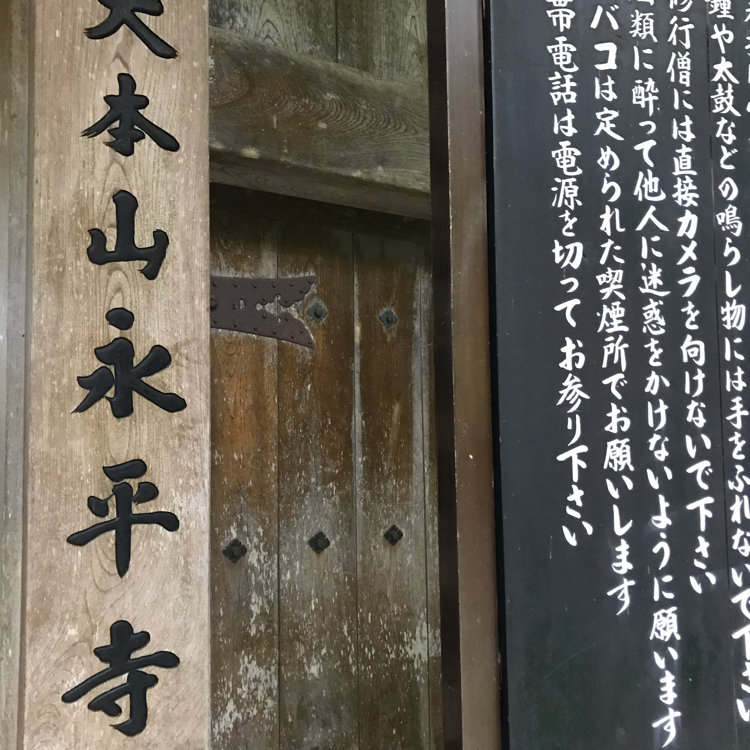 鐘や太鼓などの鳴らし物には手をふれないで下さい
修行僧には直接カメラを向けないで下さい
類に酔って他人に迷惑をかけないように願います
バコは定められた喫煙所でお願いします
帯電話は電源を切ってお参り下さい
大本山永平寺